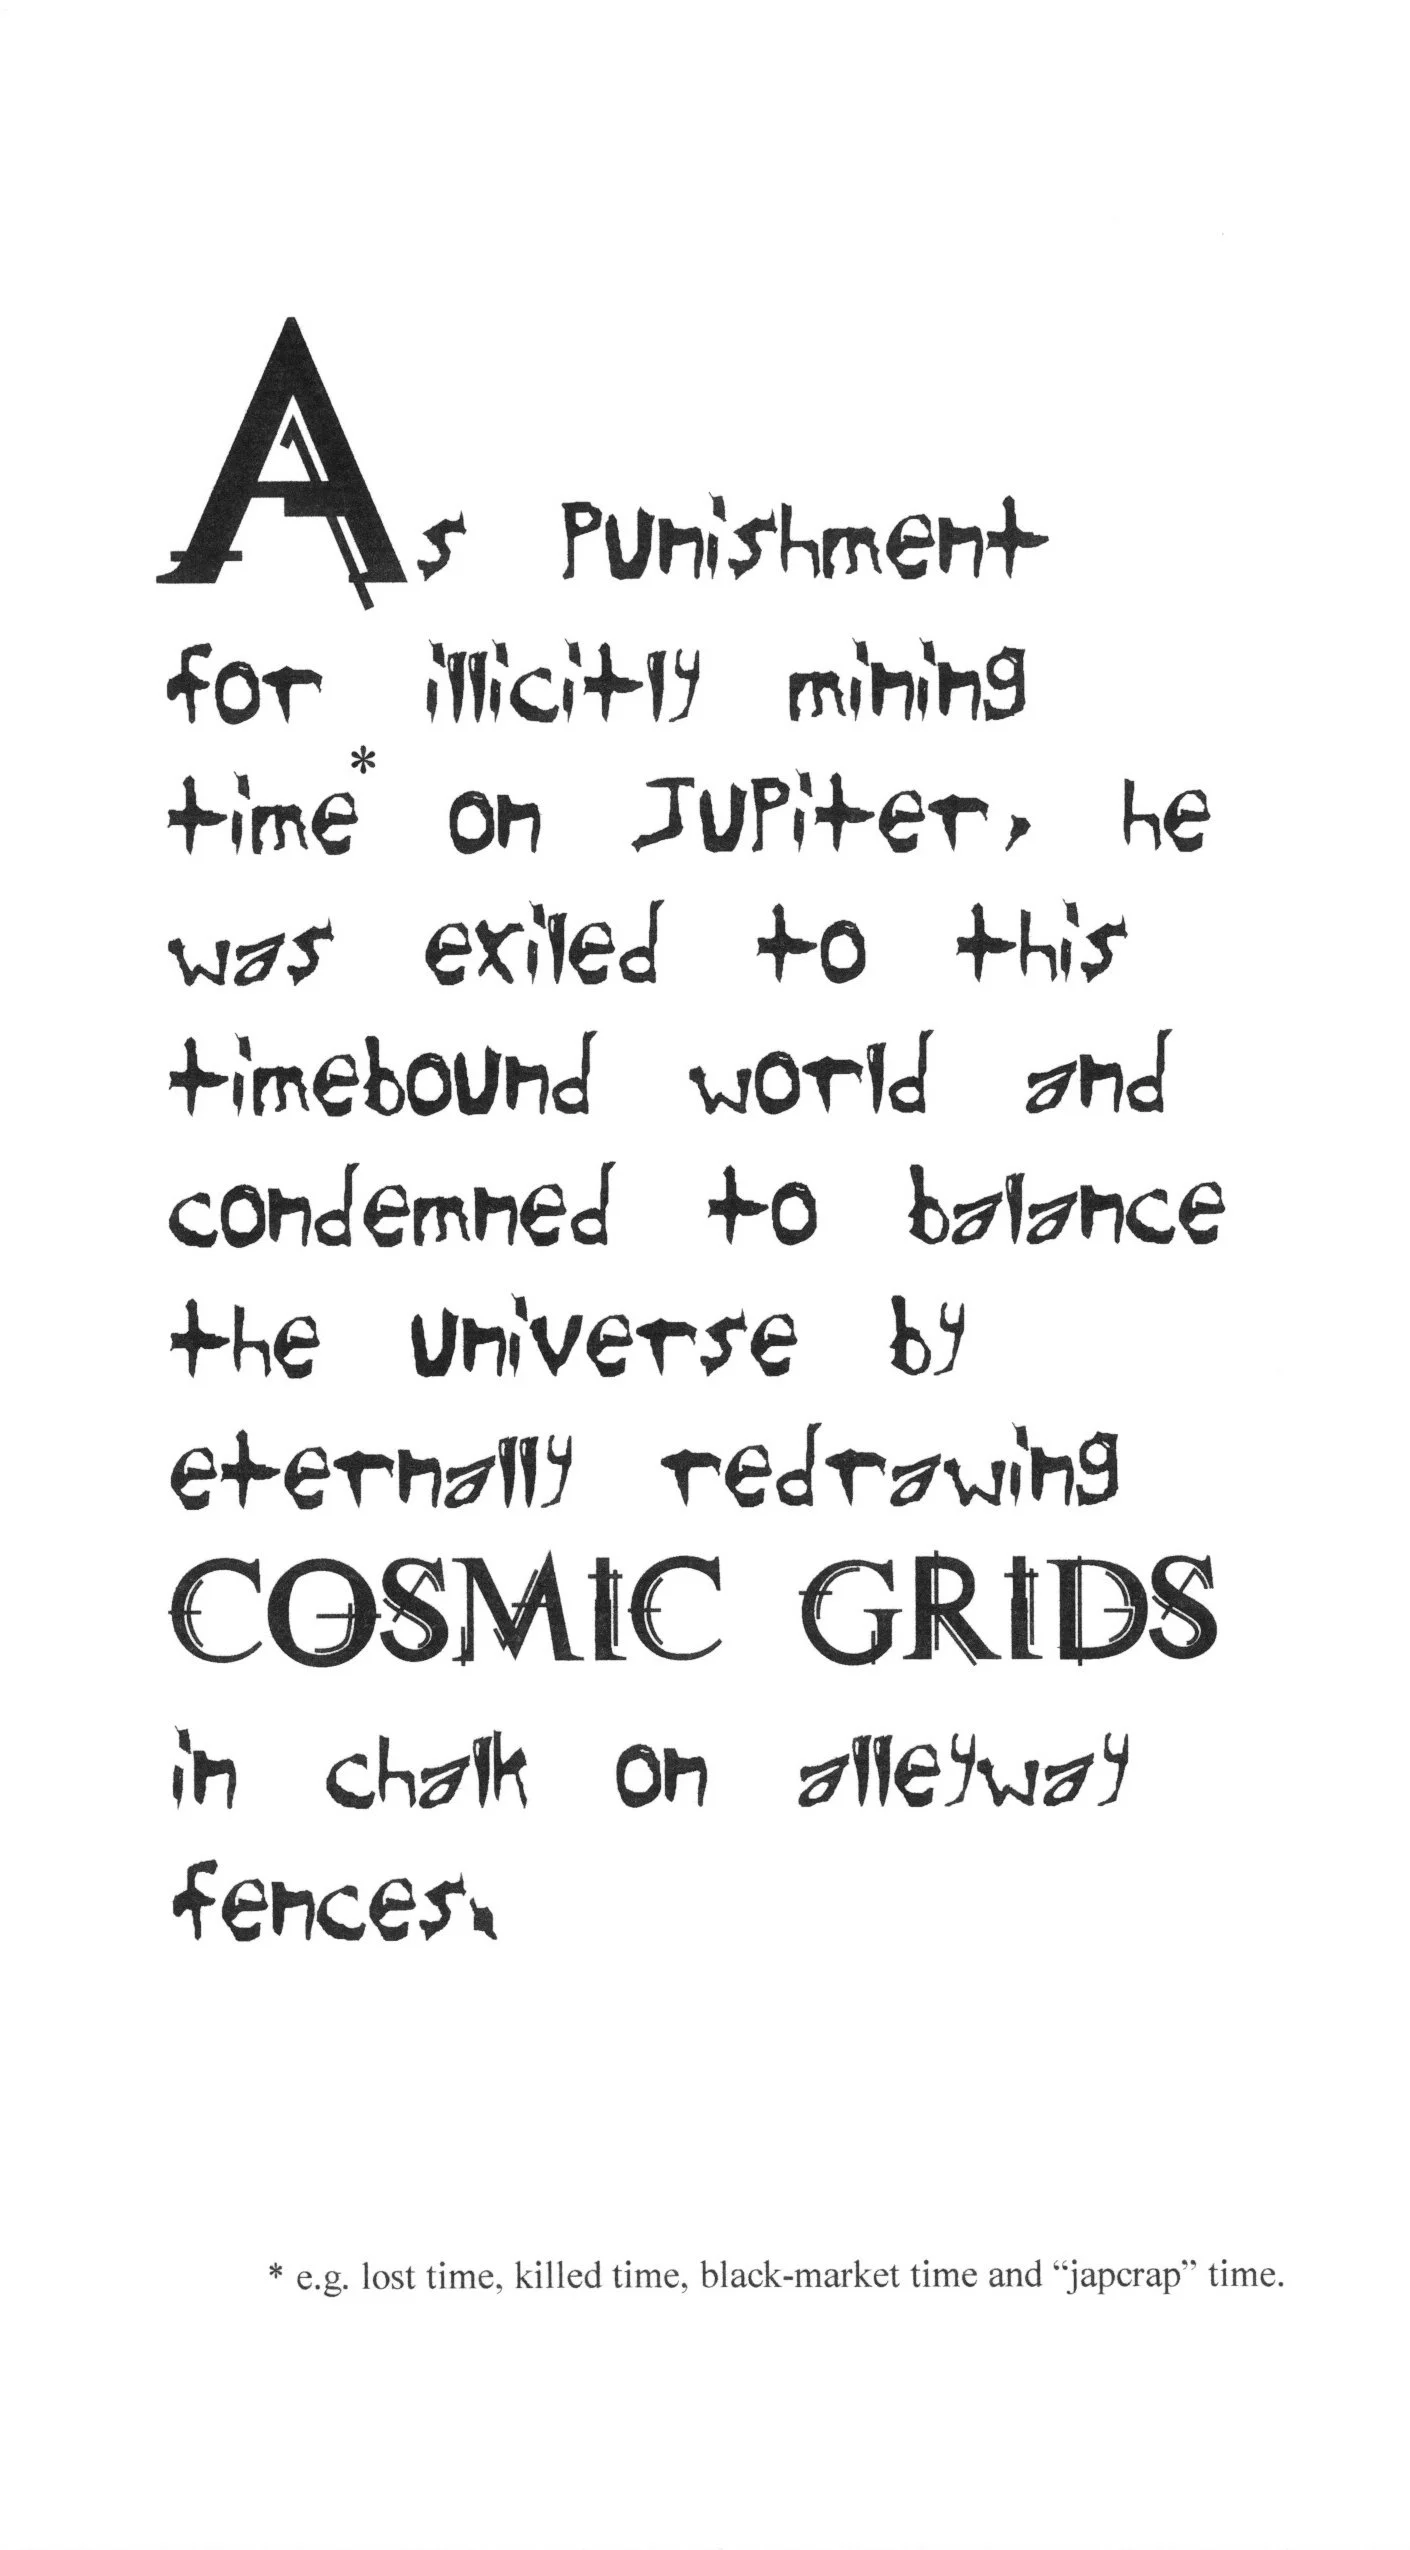 As punishment
for illicitly mining
time* on Jupiter, he
was exiled to this
timebound world and
condemned to balance
the universe by
eternally redrawing
COSMIC GRIDS
in chalk on alleyway
fences.
* e.g. lost time, killed time, black-market time and “japcrap” time.